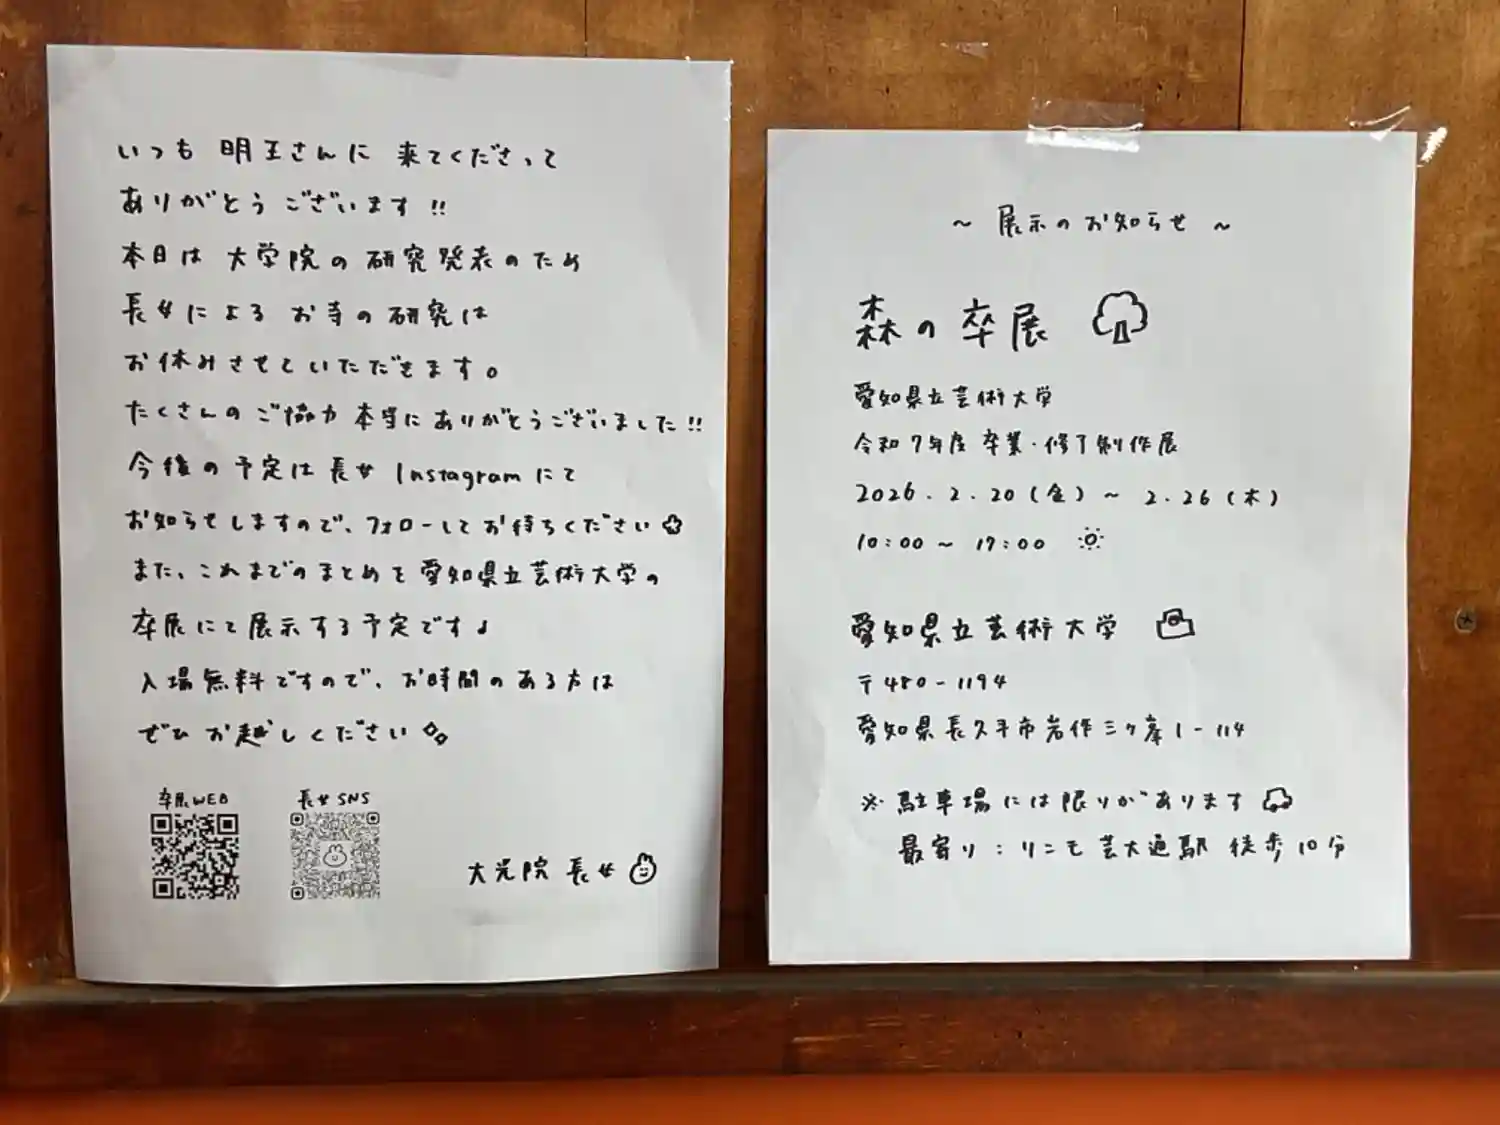 いつも 明王さんに 来てくださって
ありがとう ございます!!
本日は 大学院の 研究発表のため
長女による お寺の研究は
お休みさせていただきます。
たくさんのご協力 本当にありがとうございました!!
今後の予定は 長女 Instagramにて
お知らせしますので、フォローしてお待ちください
また、これまでのまとめを 愛知県立芸術大学の
卒展にて展示する予定です♩
入場無料ですので、お時間のある方は
ぜひ お越しください
卒展WEB
長女SNS
大光院 長女
~ 展示のお知らせ ~
森の卒展
愛知県立芸術大学
令和7年度 卒業・修了制作展
2026.2.20(金)~ 2.26(木)
10:00 ~ 17:00
愛知県立芸術大学
〒480-1194
愛知県長久手市岩作三ケ峯1-114
※ 駐車場には限りがあります
最寄り:リニモ芸大通駅 徒歩10分